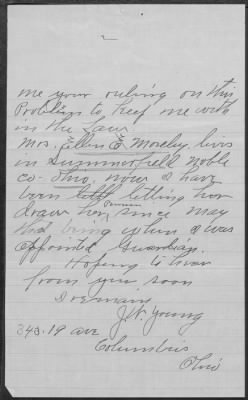 2
me your ruling on this
Problem to keep me with
in the Law
Mrs. Ellen E. Moseley, lives
in Summerfield Noble
co. Ohio, now I have
been letting her
draw her Pension since May
that being when I was
Appointed Guardian.
Hoping to hear
from you soon
I remain
J.W. Young
343. 19 ave
Columbus
Ohio